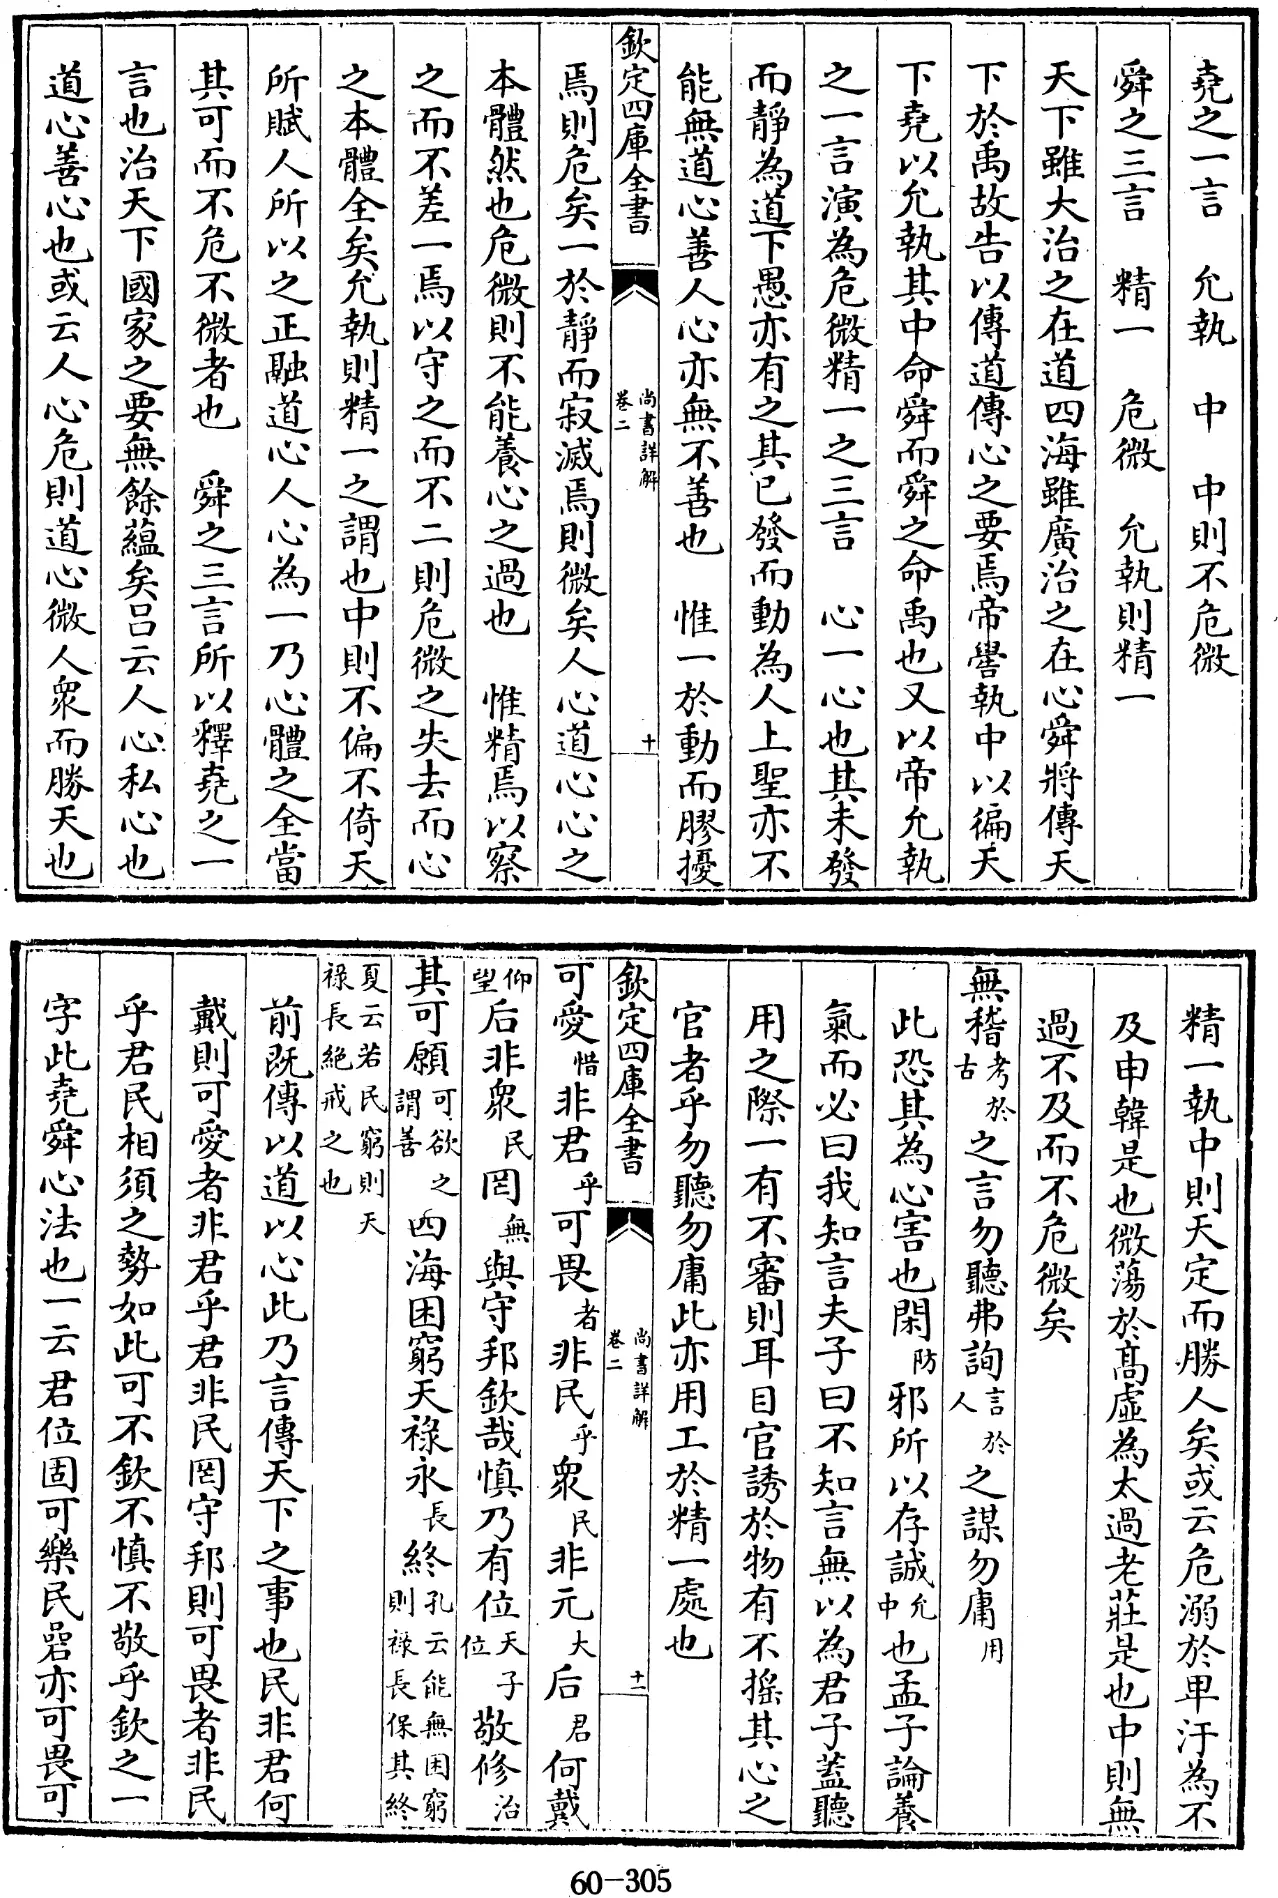 堯之一言　允執　中　中則不危微
舜之三言　精一　危微　允執則精一
天下雖大治之在道四海雖廣治之在心舜將傳天
下於禹故告以傳道傳心之要焉帝嚳執中以徧天
下堯以允執其中命舜而舜之命禹也又以帝允執
之一言演為危微精一之三言　心一心也其未發
而靜為道下愚亦有之其已發而動為人上聖亦不
能無道心善人心亦無不善也　惟一於動而膠擾
欽定四庫全書
尚書詳解
卷二
十
焉則危矣一於靜而寂滅焉則微矣人心道心心之
本體然也危微則不能養心之過也　惟精焉以察
之而不差一焉以守之而不二則危微之失去而心
之本體全矣允執則精一之謂也中則不偏不倚天
所賦人所以之正融道心人心為一乃心體之全當
其可而不危不微者也　舜之三言所以釋堯之一
言也治天下國家之要無餘蘊矣呂云人心私心也
道心善心也或云人心危則道心微人衆而勝天也
精一執中則天定而勝人矣或云危溺於卑汙為不
及申韓是也微蕩於髙虛為太過老莊是也中則無
過不及而不危微矣
無稽考於古之言勿聽弗詢言於人之謀勿庸用
此恐其為心害也閑防邪所以存誠允中也孟子論養
氣而必曰我知言夫子曰不知言無以為君子蓋聽
用之際一有不審則耳目官誘於物有不搖其心之
官者乎勿聽勿庸此亦用工於精一處也
欽定四庫全書
尚書詳解
卷二
十一
可愛惜非君乎可畏者非民乎衆民非元大后君何戴
仰望后非衆民罔無與守邦欽哉慎乃有位天子位敬修治
其可願可欲之謂善四海困窮天祿永長終孔云能無困窮則祿長保其終
夏云若民窮則天祿長絕戒之也
前既傳以道以心此乃言傳天下之事也民非君何
戴則可愛者非君乎君非民罔守邦則可畏者非民
乎君民相須之勢如此可不欽不慎不敬乎欽之一
字此堯舜心法也一云君位固可樂民碞亦可畏可